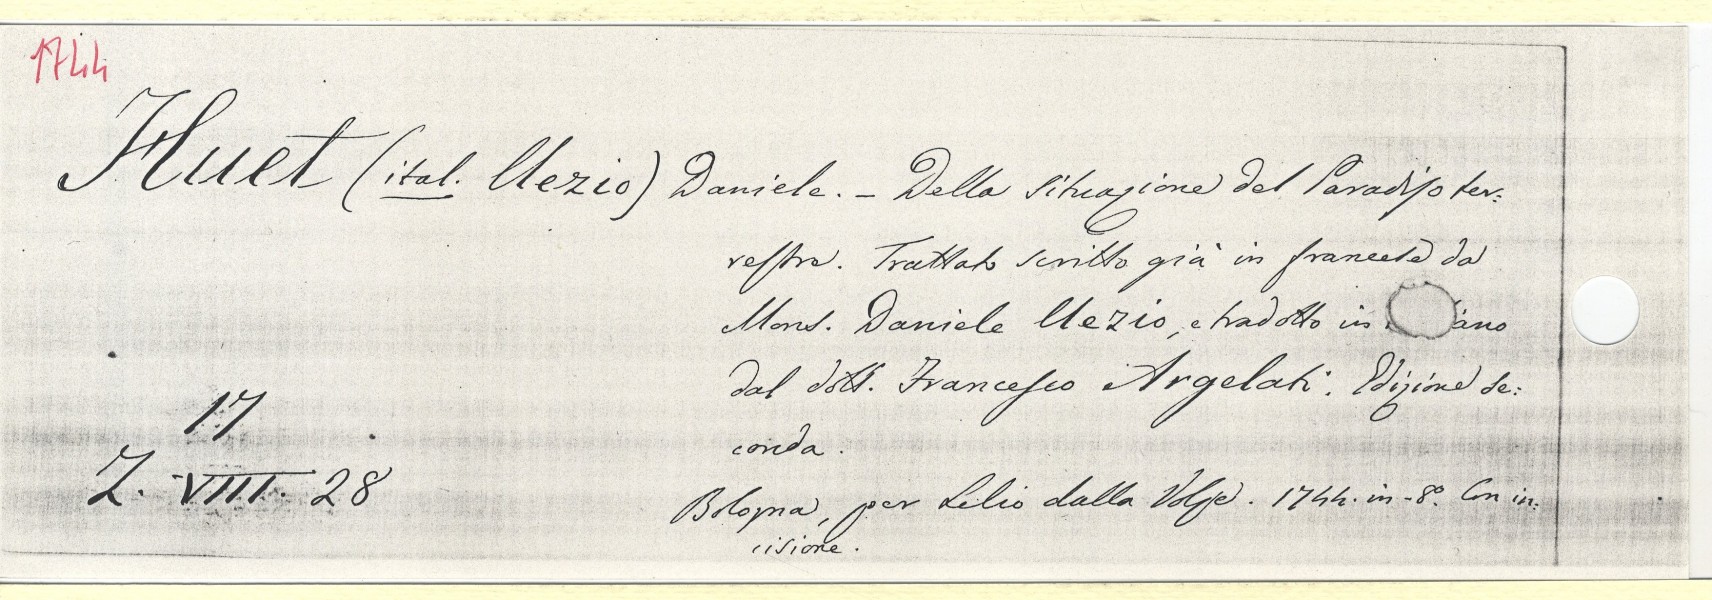 1744
Huet (ital. Uezio) Daniele. - Della situazione del Paradiso ter=
restre. Trattato scritto già in francese da
Mons. Daniele Uezio, e tradotto in ano
dal dott. Francesco Argelati. Edizione se=
conda.
17
Z. VIII. 28
Bologna, per Lelio dalla Volpe. 1744. in-8º. Con in=
cisione.